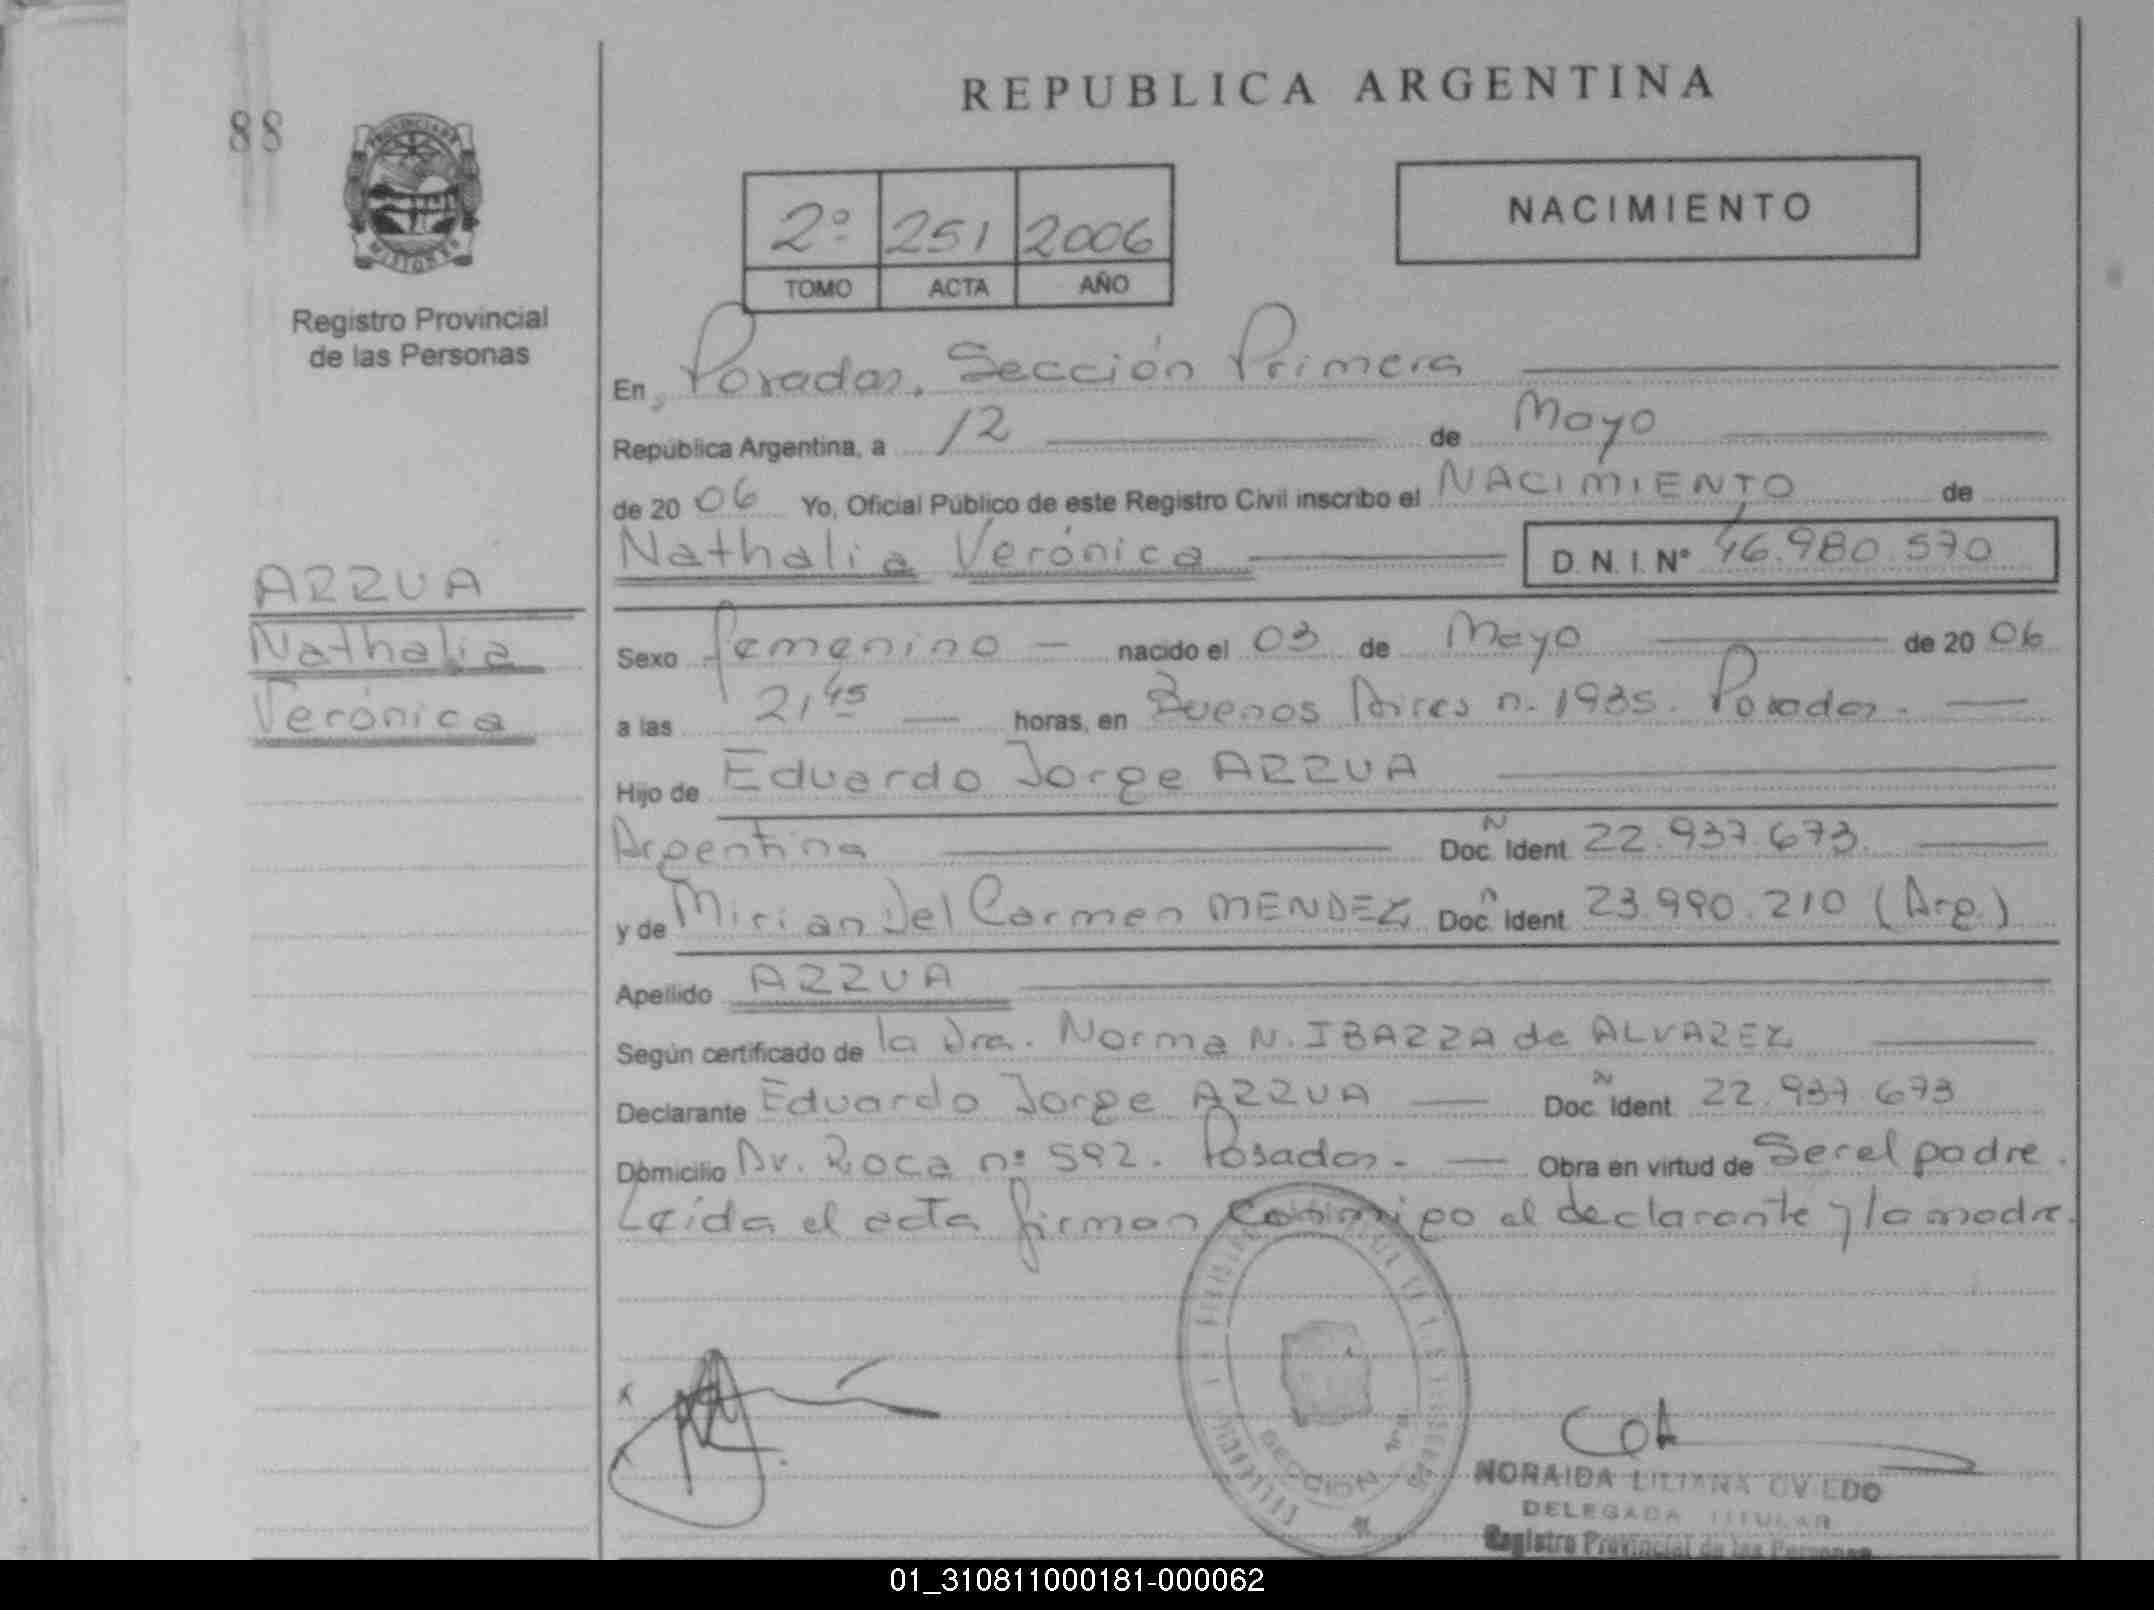 88
REPUBLICA ARGENTINA
PROVINCIA DE
MISIONES
Registro Provincial
de las Personas
2º 251 2006
TOMO ACTA AÑO
NACIMIENTO
En Posadas, Sección Primera
República Argentina, a 12 de Mayo
de 2006 Yo, Oficial Público de este Registro Civil inscribo el NACIMIENTO de
Nathalia Verónica D. N. I. N° 46.980.570
ARRUA
Nathalia
Verónica
Sexo femenino nacido el 03 de Mayo de 2006
a las 21 45 horas, en Buenos Aires n. 1935. Posadas.
Hijo de Eduardo Jorge ARRUA
Argentina Doc. Ident. 22.937.673.
y de Mirian Del Carmen MENDEZ Doc. Ident. 23.990.210 (Arg.)
Apellido ARRUA
Según certificado de la Dra. Norma N. IBARRA de ALVAREZ
Declarante Eduardo Jorge ARRUA Doc. Ident. 22.937.673
Domicilio Av. Roca nº 592. Posadas. Obra en virtud de Ser el padre.
Leída el acta firman conmigo el declarante y la madre.
SECCION 1ra
NORAIDA LILIANA OVIEDO
DELEGADA TITULAR
Registro Provincial de las Personas
01_310811000181-000062